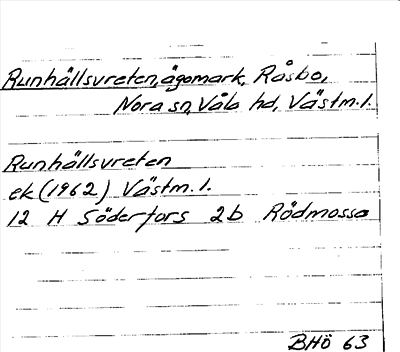 Runhällsvreten, ägomark, Råsbo,
Nora sn, Våla hd, Västm.l.
Runhällsvreten
ek (1962) Västm. l.
12 H Söderfors 2b Rödmossa
BHö 63